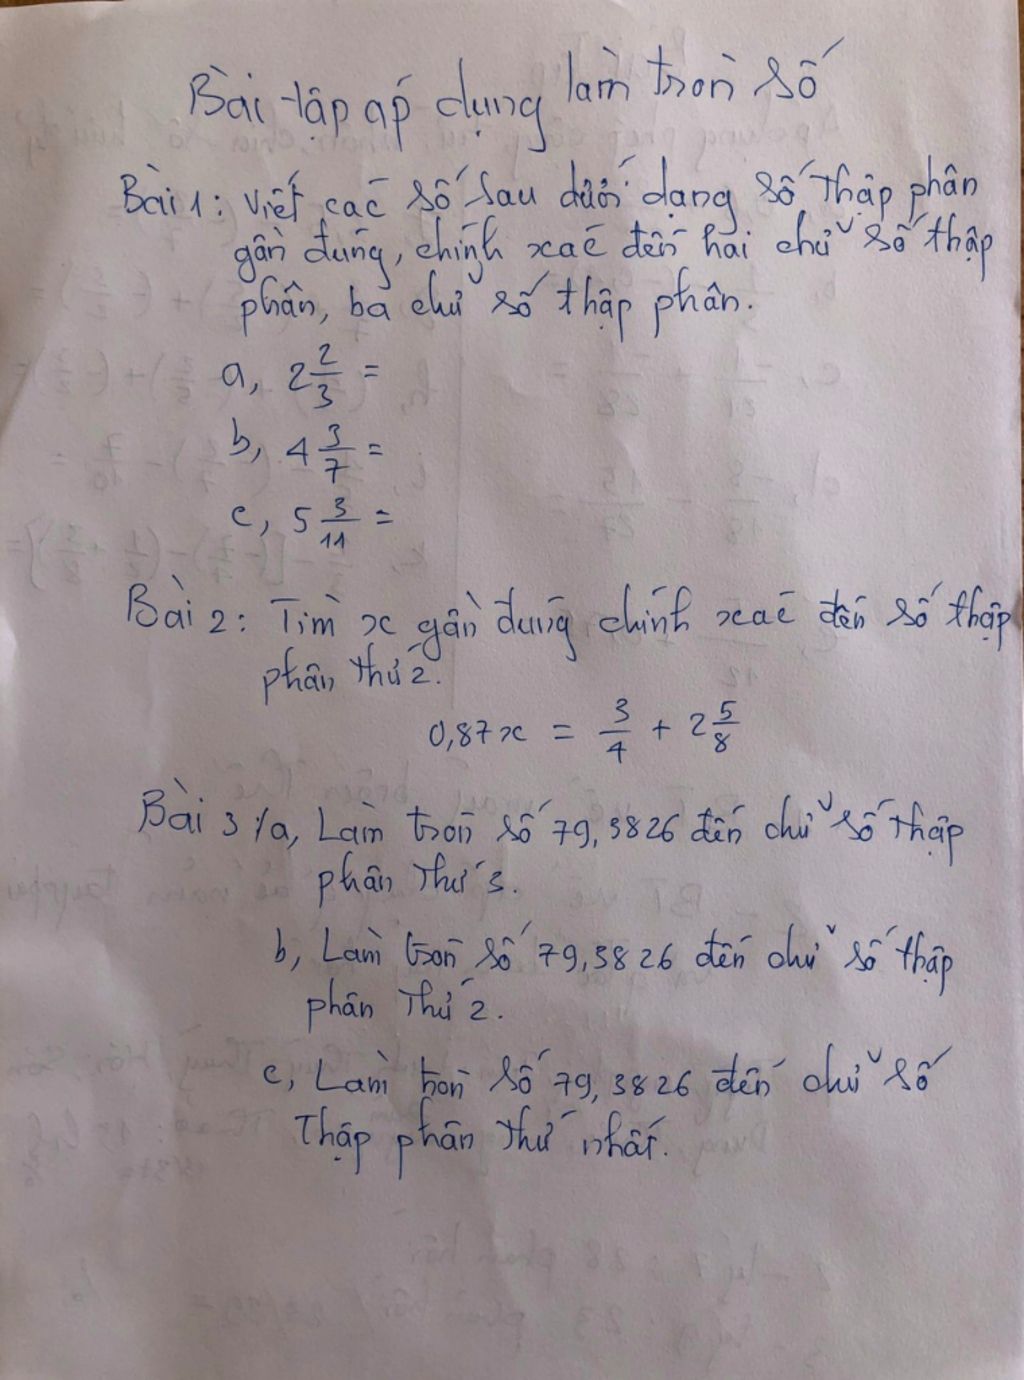 Bài tập áp dụng làm tròn số
Bài 1: Viết các số sau dưới dạng số thập phân
gần đúng, chính xác đến hai chữ số thập
phân, ba chữ số thập phân.
a, 2 2/3 =
b, 4 3/7 =
c, 5 3/11 =
Bài 2: Tìm x gần đúng chính xác đến số thập
phân thứ 2.
0,87x = 3/4 + 2 5/8
Bài 3/a, Làm tròn số 79,3826 đến chữ số thập
phân thứ 3.
b, Làm tròn số 79,3826 đến chữ số thập
phân thứ 2.
c, Làm tròn số 79,3826 đến chữ số
Thập phân thứ nhất.